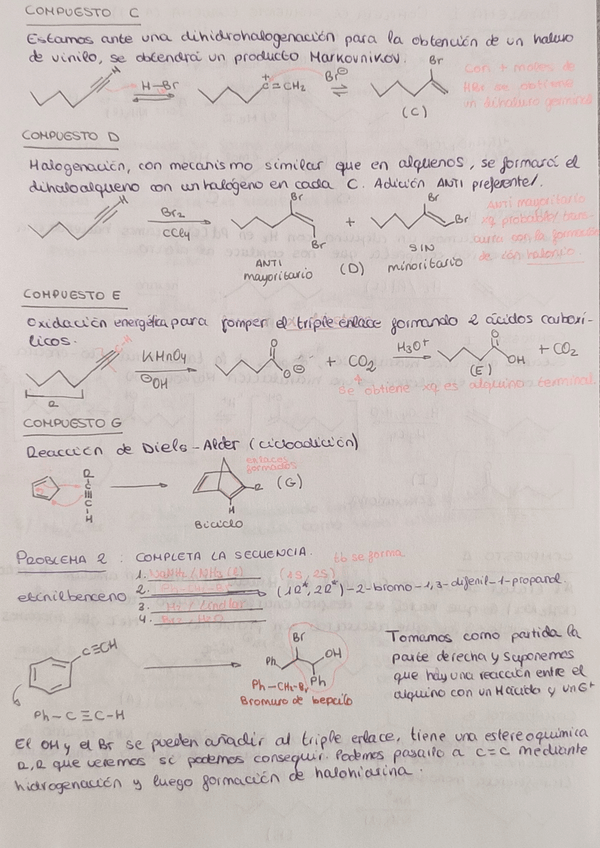 COMPUESTO C
Estamos ante una dihidrohalogenación para la obtención de un haluro
de vinilo, se obtendrá un producto Markovnikov.
H
H-Br
+
C=CH2
Br⊖
Br
(C)
con + moles de
HBr se obtiene
un dihaluro geminal
COMPUESTO D
Halogenación, con mecanismo similar que en alquenos, se formará el
dihaloalqueno con un halógeno en cada C. Adición ANTI preferente/.
H
Br2
CCl4
Br
Br
+
Br
Br
ANTI
mayoritario
(D)
SIN
minoritario
ANTI mayoritario
xq probablem trans-
curra con la formación
de ión halonio.
COMPUESTO E
Oxidación energética para romper el triple enlace formando 2 ácidos carboxí-
licos.
R
KMnO4
⊖OH
O
O⊖
+ CO2
H3O+
O
OH
(E)
+ CO2
se obtiene xq es alquino terminal
COMPUESTO G
Reacción de Diels-Alder (cicloadición)
R
C
C
H
enlaces
formados
R
H
(G)
Biciclo
PROBLEMA 2: COMPLETA LA SECUENCIA.
etinilbenceno
1. NaNH2 / NH3 (l)
2.
3. H2 / Lindlar
4. Br2 / H2O
tb se forma
(1S, 2S)
(1R*, 2R*)-2-bromo-1,3-difenil-1-propanol.
C≡CH
Ph-C≡C-H
Br
Ph
OH
Ph
Ph-CH2-Br
Bromuro de bencilo
Tomamos como partida la
parte derecha y suponemos
que hay una reacción entre el
alquino con un Hácido y un E+
El OH y el Br se pueden añadir al triple enlace, tiene una estereoquímica
R,R que veremos si podemos conseguir. Podemos pasarlo a C=C mediante
hidrogenación y luego formación de halohidrina.